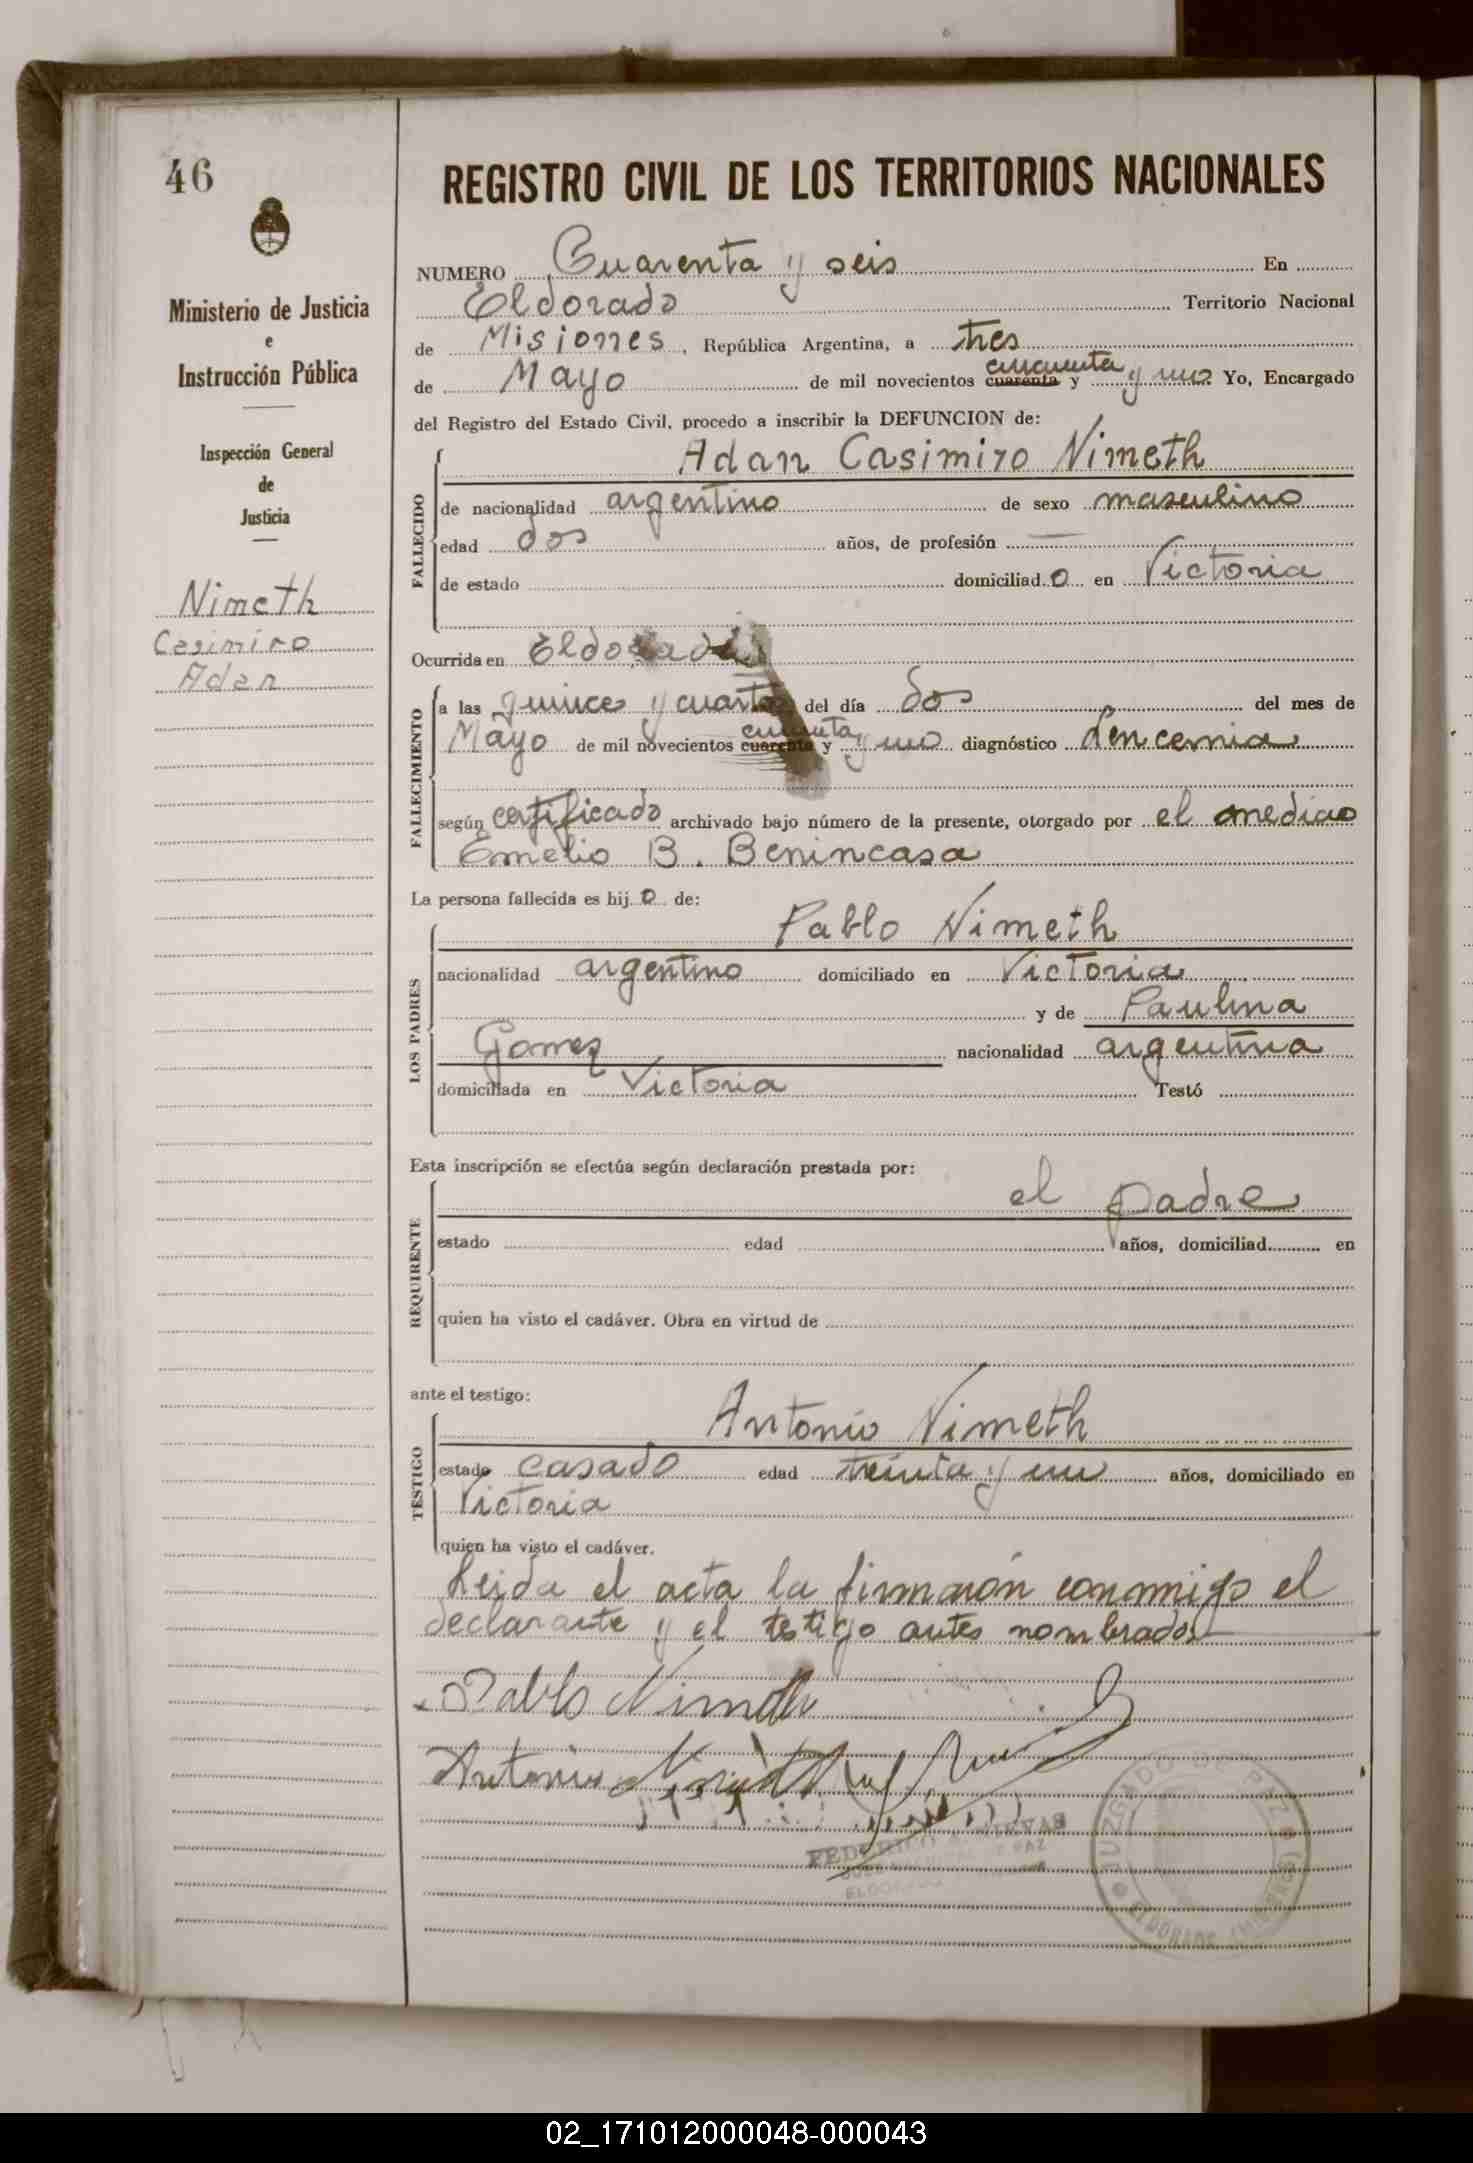 46
Ministerio de Justicia
e
Instrucción Pública
Inspección General
de
Justicia
Nimeth
Casimiro
Adan
REGISTRO CIVIL DE LOS TERRITORIOS NACIONALES
NUMERO Cuarenta y seis En
Eldorado Territorio Nacional
de Misiones, República Argentina, a tres
de Mayo de mil novecientos cuarenta cincuenta y y uno Yo, Encargado
del Registro del Estado Civil, procedo a inscribir la DEFUNCION de:
Adan Casimiro Nimeth
FALLECIDO
de nacionalidad argentino de sexo masculino
edad dos años, de profesión —
de estado domiciliado en Victoria
Ocurrida en Eldorado
FALLECIMIENTO
a las quince y cuarto del día dos del mes de
Mayo de mil novecientos cuarenta cincuenta y y uno diagnóstico
según certificado archivado bajo número de la presente, otorgado por el medico
Emelio B. Benincasa
La persona fallecida es hijo de:
LOS PADRES
Pablo Nimeth
nacionalidad argentino domiciliado en Victoria
y de Paulina
Gomez nacionalidad argentina
domiciliada en Victoria Testó
Esta inscripción se efectúa según declaración prestada por:
REQUIRENTE
el padre
estado edad años, domiciliad en
quien ha visto el cadáver. Obra en virtud de
ante el testigo:
TESTIGO
Antonio Nimeth
estado casado edad treinta y un años, domiciliado en
Victoria
quien ha visto el cadáver.
Leida el acta la firmaron conmigo el
declarante y el testigo antes nombrados
Pablo Nimeth
Antonio Nimeth
FEDERICO
JUZGADO DE PAZ
ELDORADO (MISIONES)
02_171012000048-000043